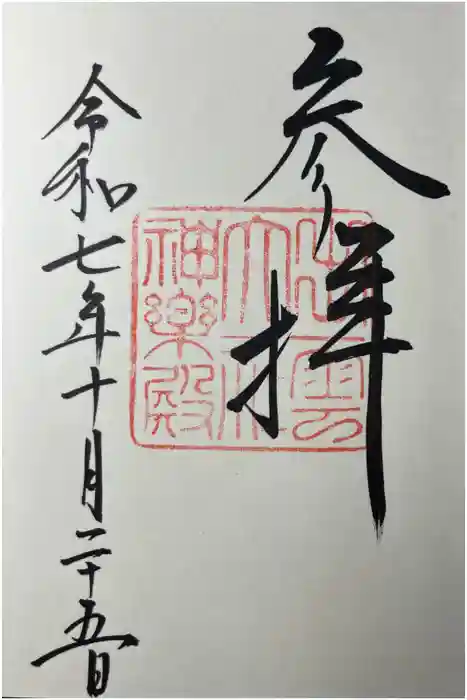 参拝
出雲
大社
神楽殿
令和七年十月二十五日